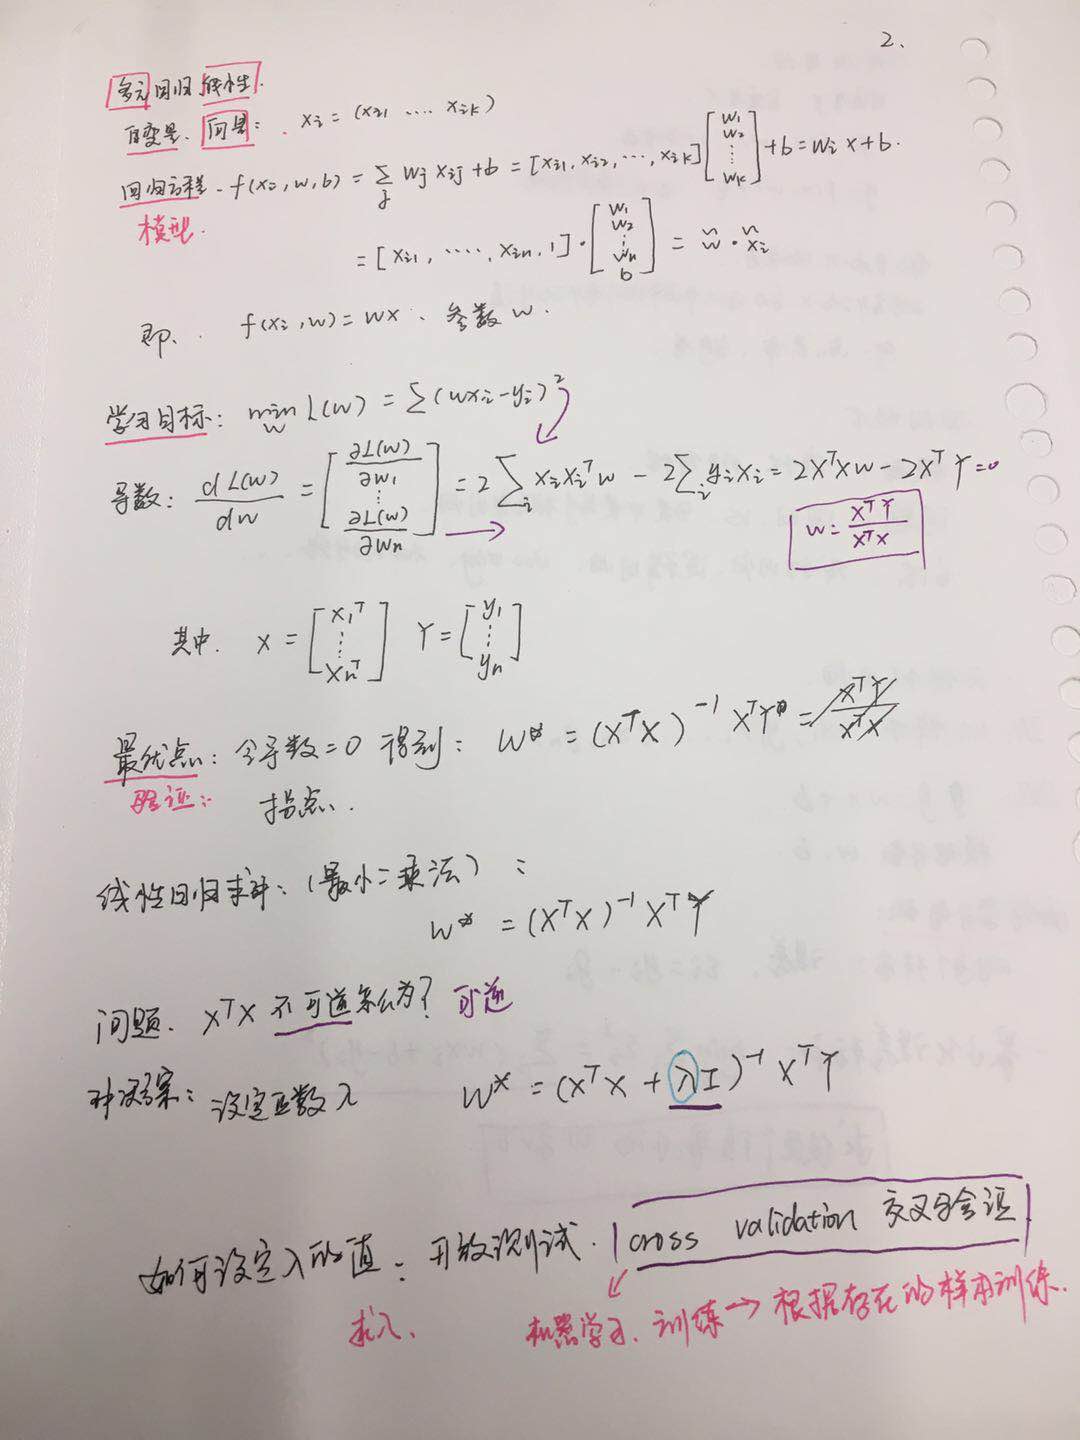 2.
多元回归 线性.
自变量. 向量: . xi = (xi1 .... xik)
回归方程. f(xi, w, b) = ∑j wj xij + b = [xi1, xi2, ..., xik] [w1 w2 ⋮ wk] + b = wi x + b.
模型.
= [xi1, ....., xin, 1] · [w1 w2 ⋮ wn b] = w̃ · x̃i
即. f(xi, w) = wx . 参数 w .
学习目标: min w L(w) = ∑(wxi - yi)²
导数: dL(w)/dw = [∂L(w)/∂w1 ⋮ ∂L(w)/∂wn] = 2∑i xi xiᵀ w - 2∑i yi xi = 2XᵀXw - 2XᵀY = 0
w = XᵀY / XᵀX
其中. X = [x1ᵀ ⋮ xnᵀ] Y = [y1 ⋮ yn]
最优点: 令导数=0 得到: w* = (XᵀX)⁻¹ XᵀY = XᵀY / XᵀX
验证: 拐点.
线性回归求解: (最小二乘法) :
w* = (XᵀX)⁻¹ XᵀY
问题. XᵀX 不可逆怎么办? 可逆
解决方案: 设定正数 λ w* = (XᵀX + λI)⁻¹ XᵀY
如何设定 λ 的值: 开放测试. cross validation 交叉验证
求λ. 机器学习. 训练 → 根据存在的样本训练.